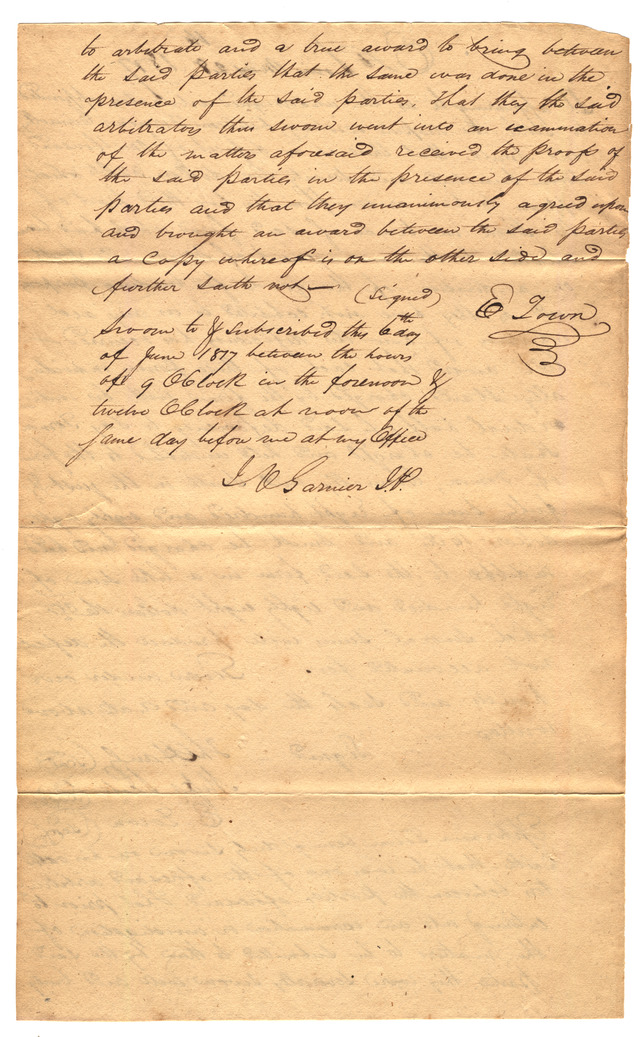 to arbitrate and a true award to bring between
the said Parties that the same was done in the
presence of the said parties. That they the said
arbitrators thus sworn went into an examination
of the matters aforesaid received the proofs of
the said Parties in the presence of the said
Parties and that they unanimously agreed upon
and brought an award between the said parties
a Copy whereof is on the other side and
further saith not —
(Signed)
E Town
Sworn to & subscribed this 6th day
of June 1817 between the hours
of 9 OClock in the forenoon &
twelve OClock at noon of the
same day before me at my Office
J V Garnier J.P.